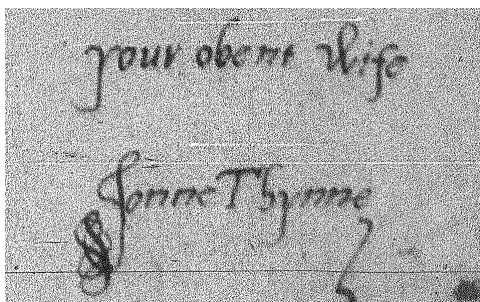 your obent wife
Jonne Thynne